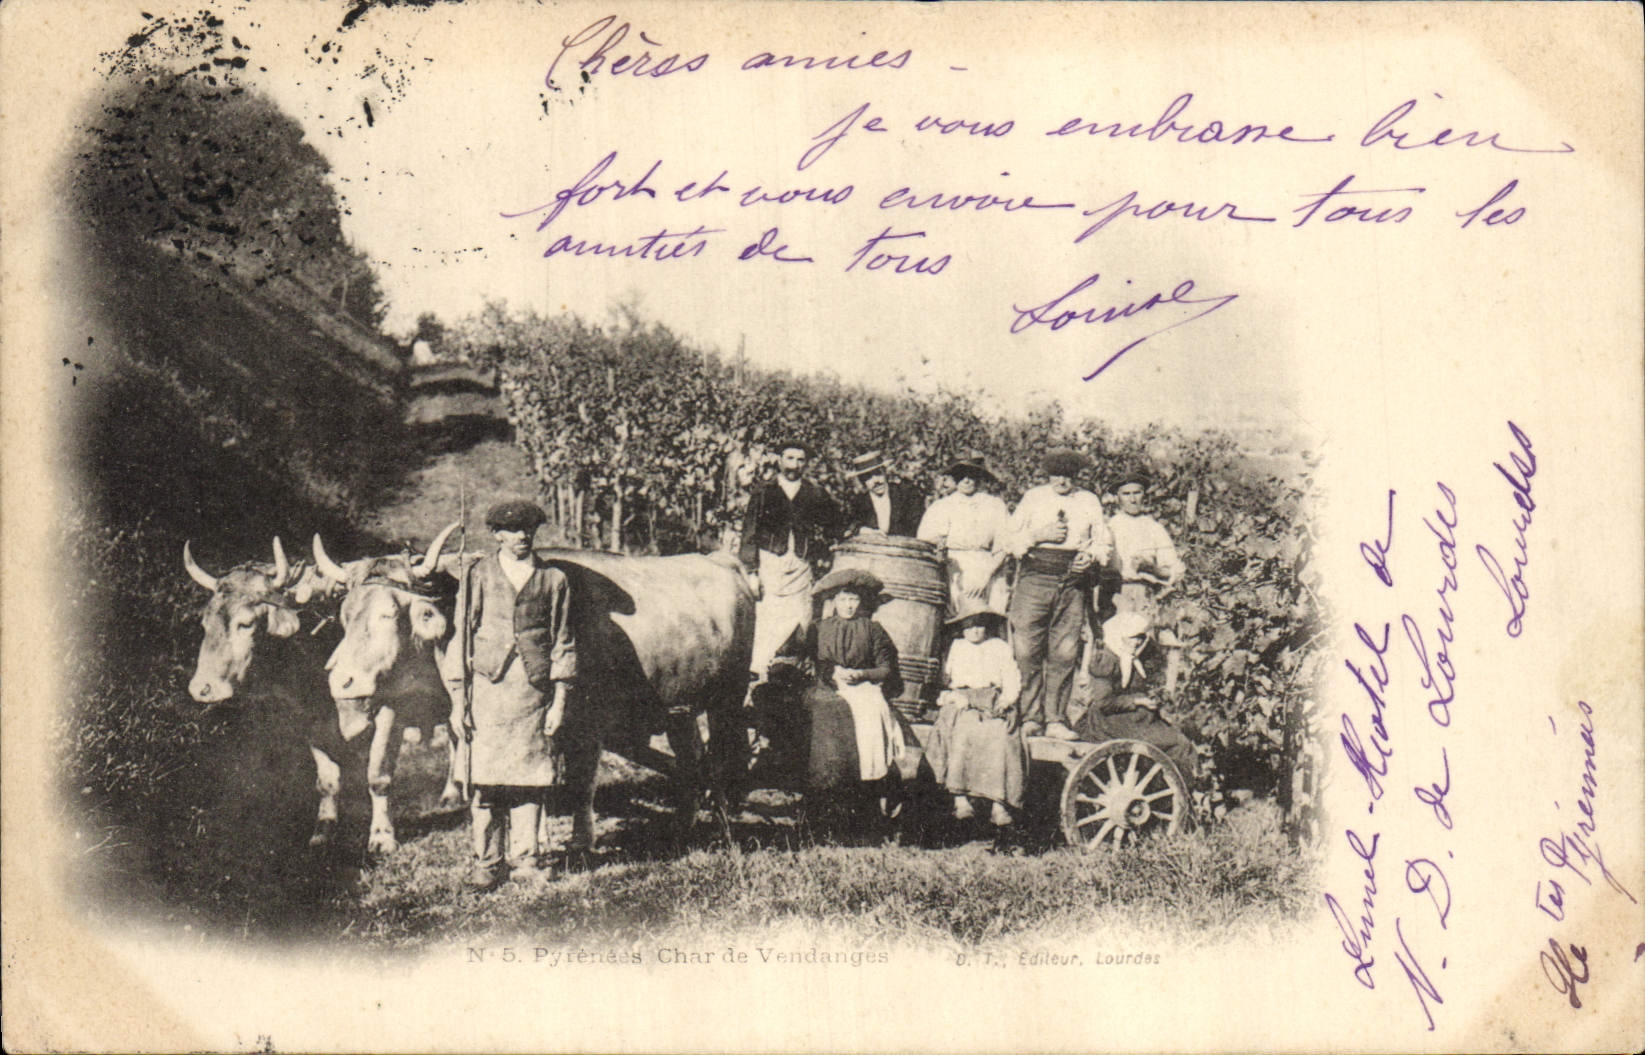 Chères amies -
je vous embrasse bien
fort et vous envoie pour tous les
amitiés de tous
Louise
Hotel de
N. D. de Lourdes
Lourdes
Htes Pyrénées
N° 5. Pyrénées Char de Vendanges
D. T., Editeur, Lourdes